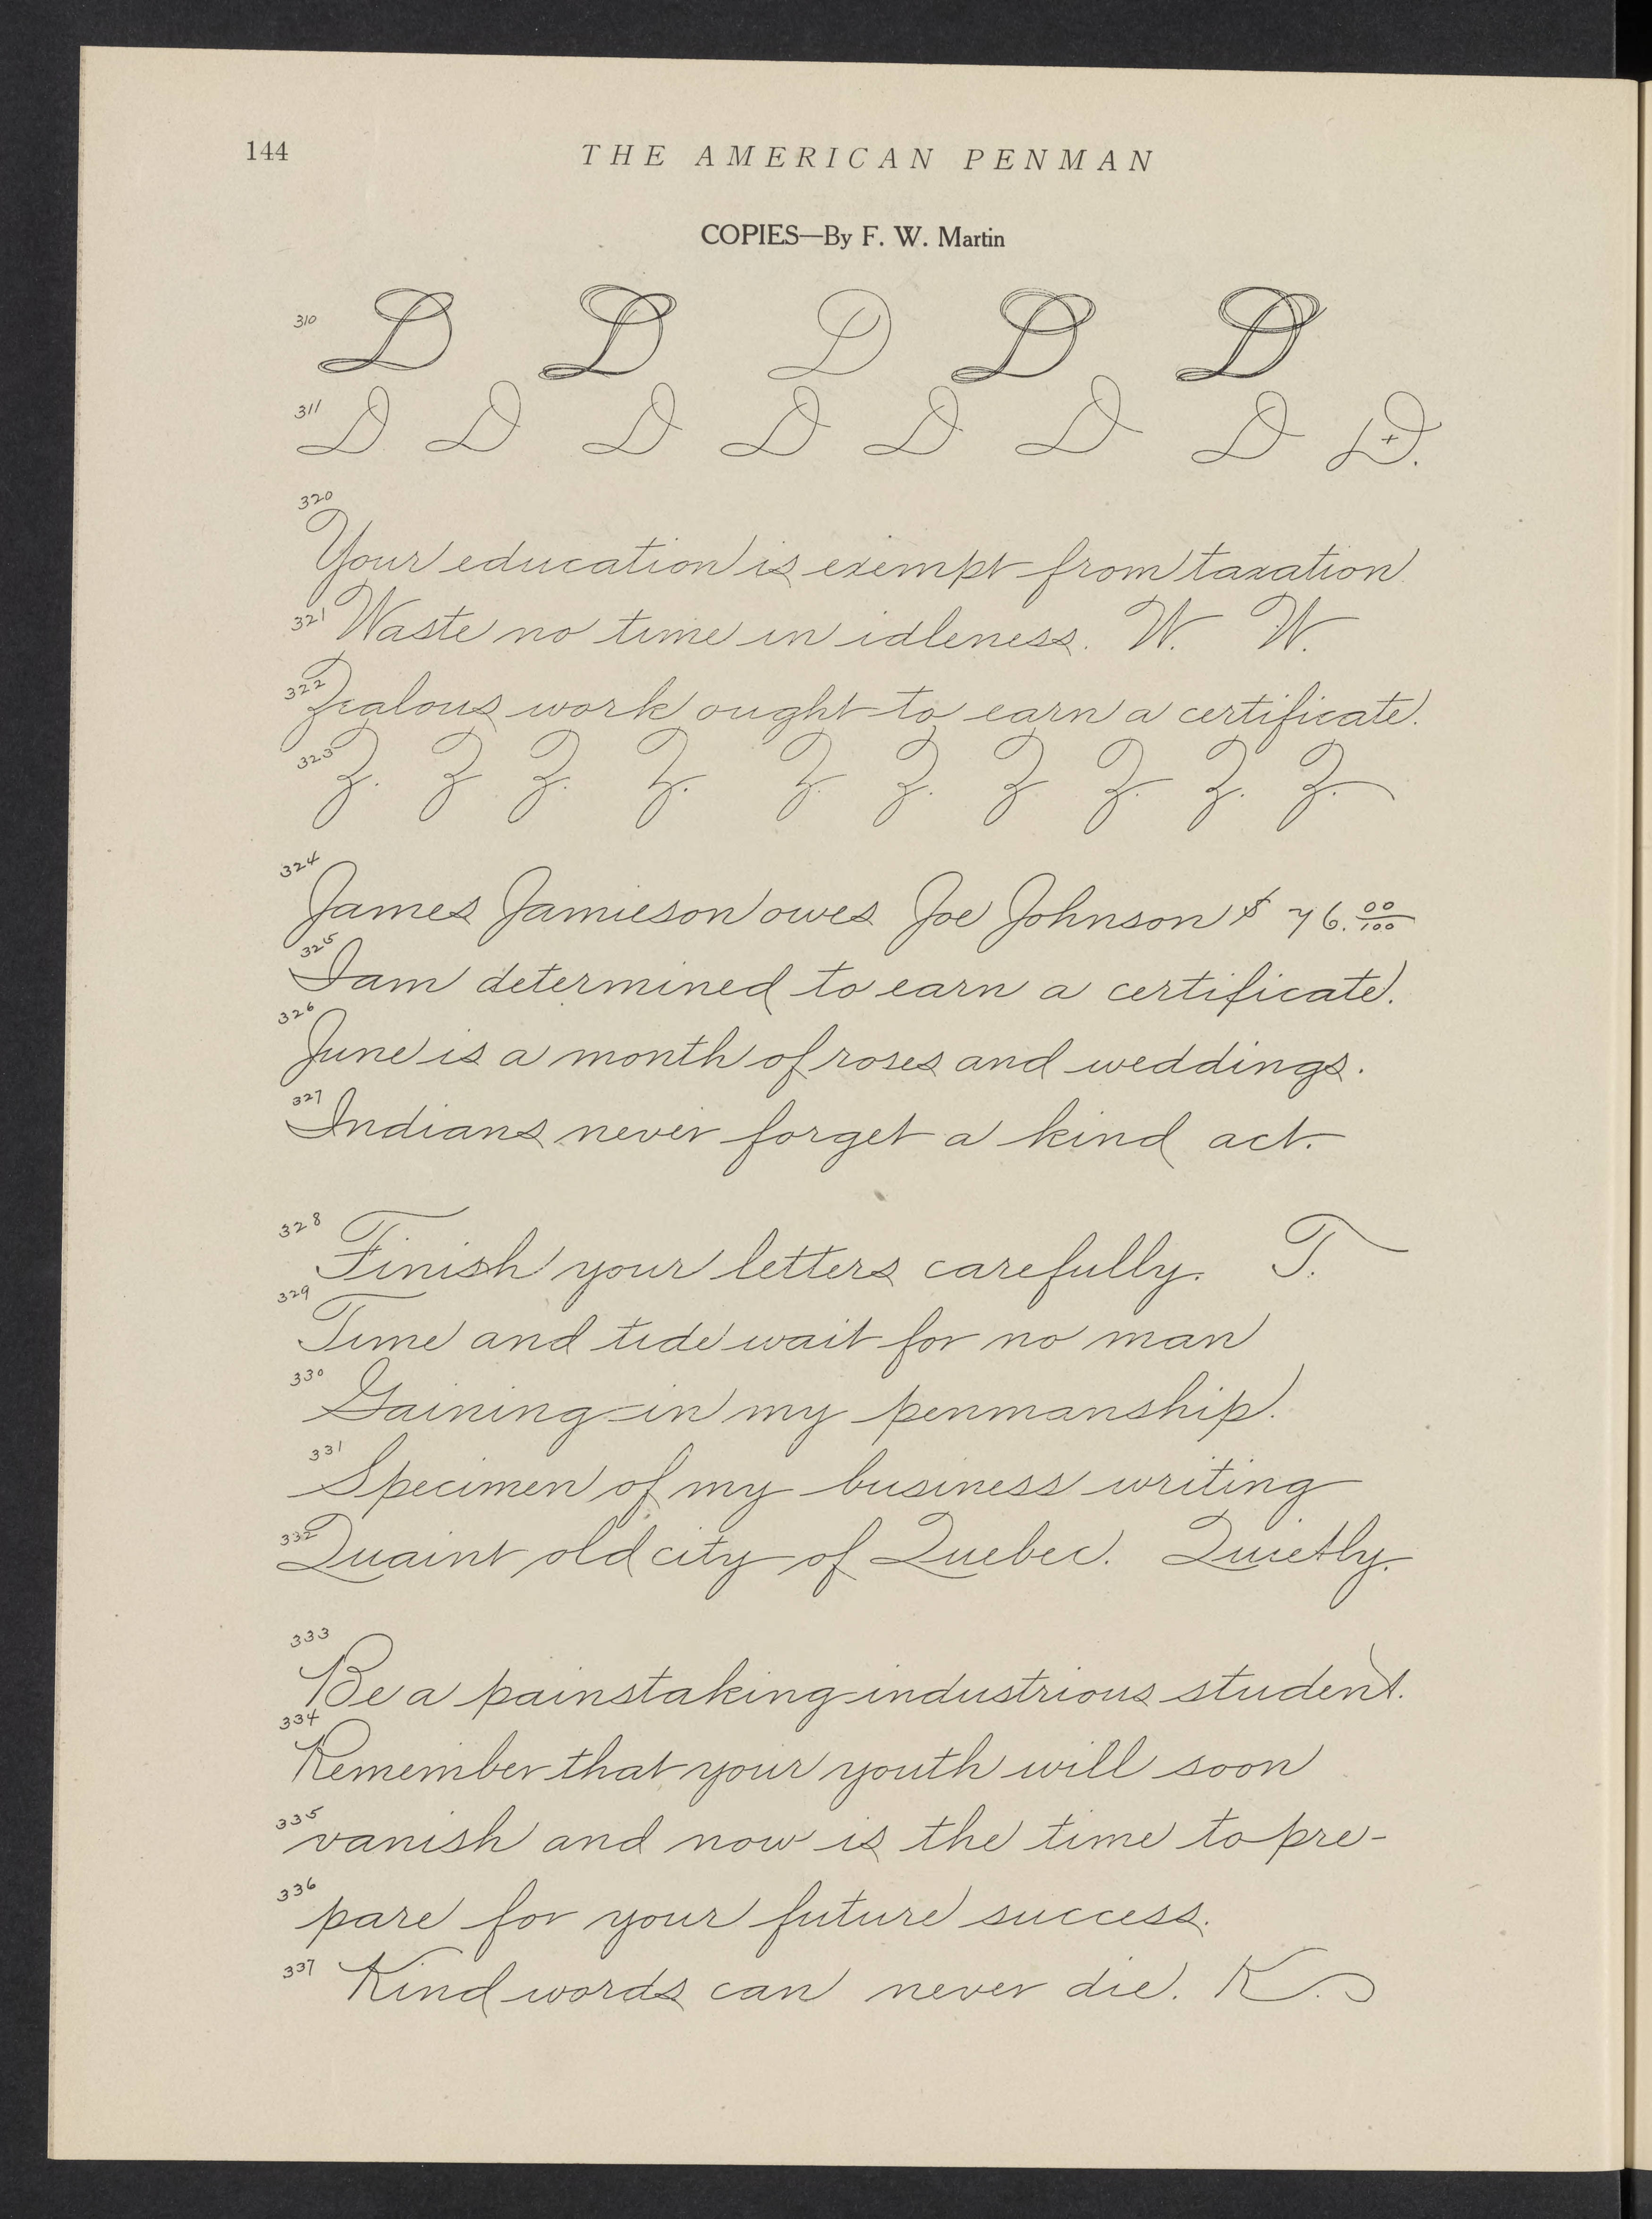 144
THE AMERICAN PENMAN
COPIES—By F. W. Martin
310 D D D D D
311 D D D D D D D D.
320
Your education is exempt from taxation
321 Waste no time in idleness. W. W.
322 Zealous work ought to earn a certificate.
323 Z. Z Z. Z. Z. Z. Z Z. Z. Z.
324
James Jamieson owes Joe Johnson $ 76.00/100
325
I am determined to earn a certificate.
326
June is a month of roses and weddings.
327
Indians never forget a kind act.
328
Finish your letters carefully. T.
329
Time and tide wait for no man
330
Gaining in my penmanship.
331
Specimen of my business writing
332
Quaint old city of Quebec. Quietly.
333
Be a painstaking industrious student.
334
Remember that your youth will soon
335
vanish and now is the time to pre-
336
pare for your future success.
337 Kind words can never die. K.